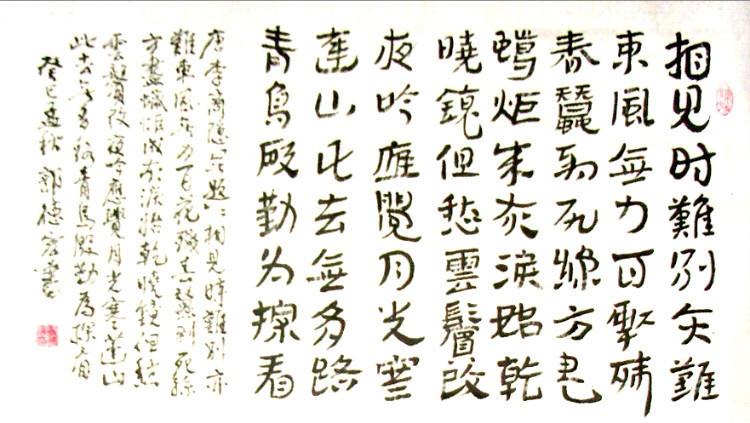 相见时難别亦難
東風無力百花残
春蠶到死絲方尽
蠟炬成灰淚始乾
曉鏡但愁雲鬢改
夜吟應覺月光寒
蓬山此去無多路
青鳥殷勤为探看
唐李商隱《無題》相見時難别亦
難東風無力百花殘春蠶到死絲
方盡蠟炬成灰淚始乾曉鏡但愁
雲鬢改夜吟應覺月光寒蓬山
此去無多路青鳥殷勤為探看
癸巳孟秋 郭德 書